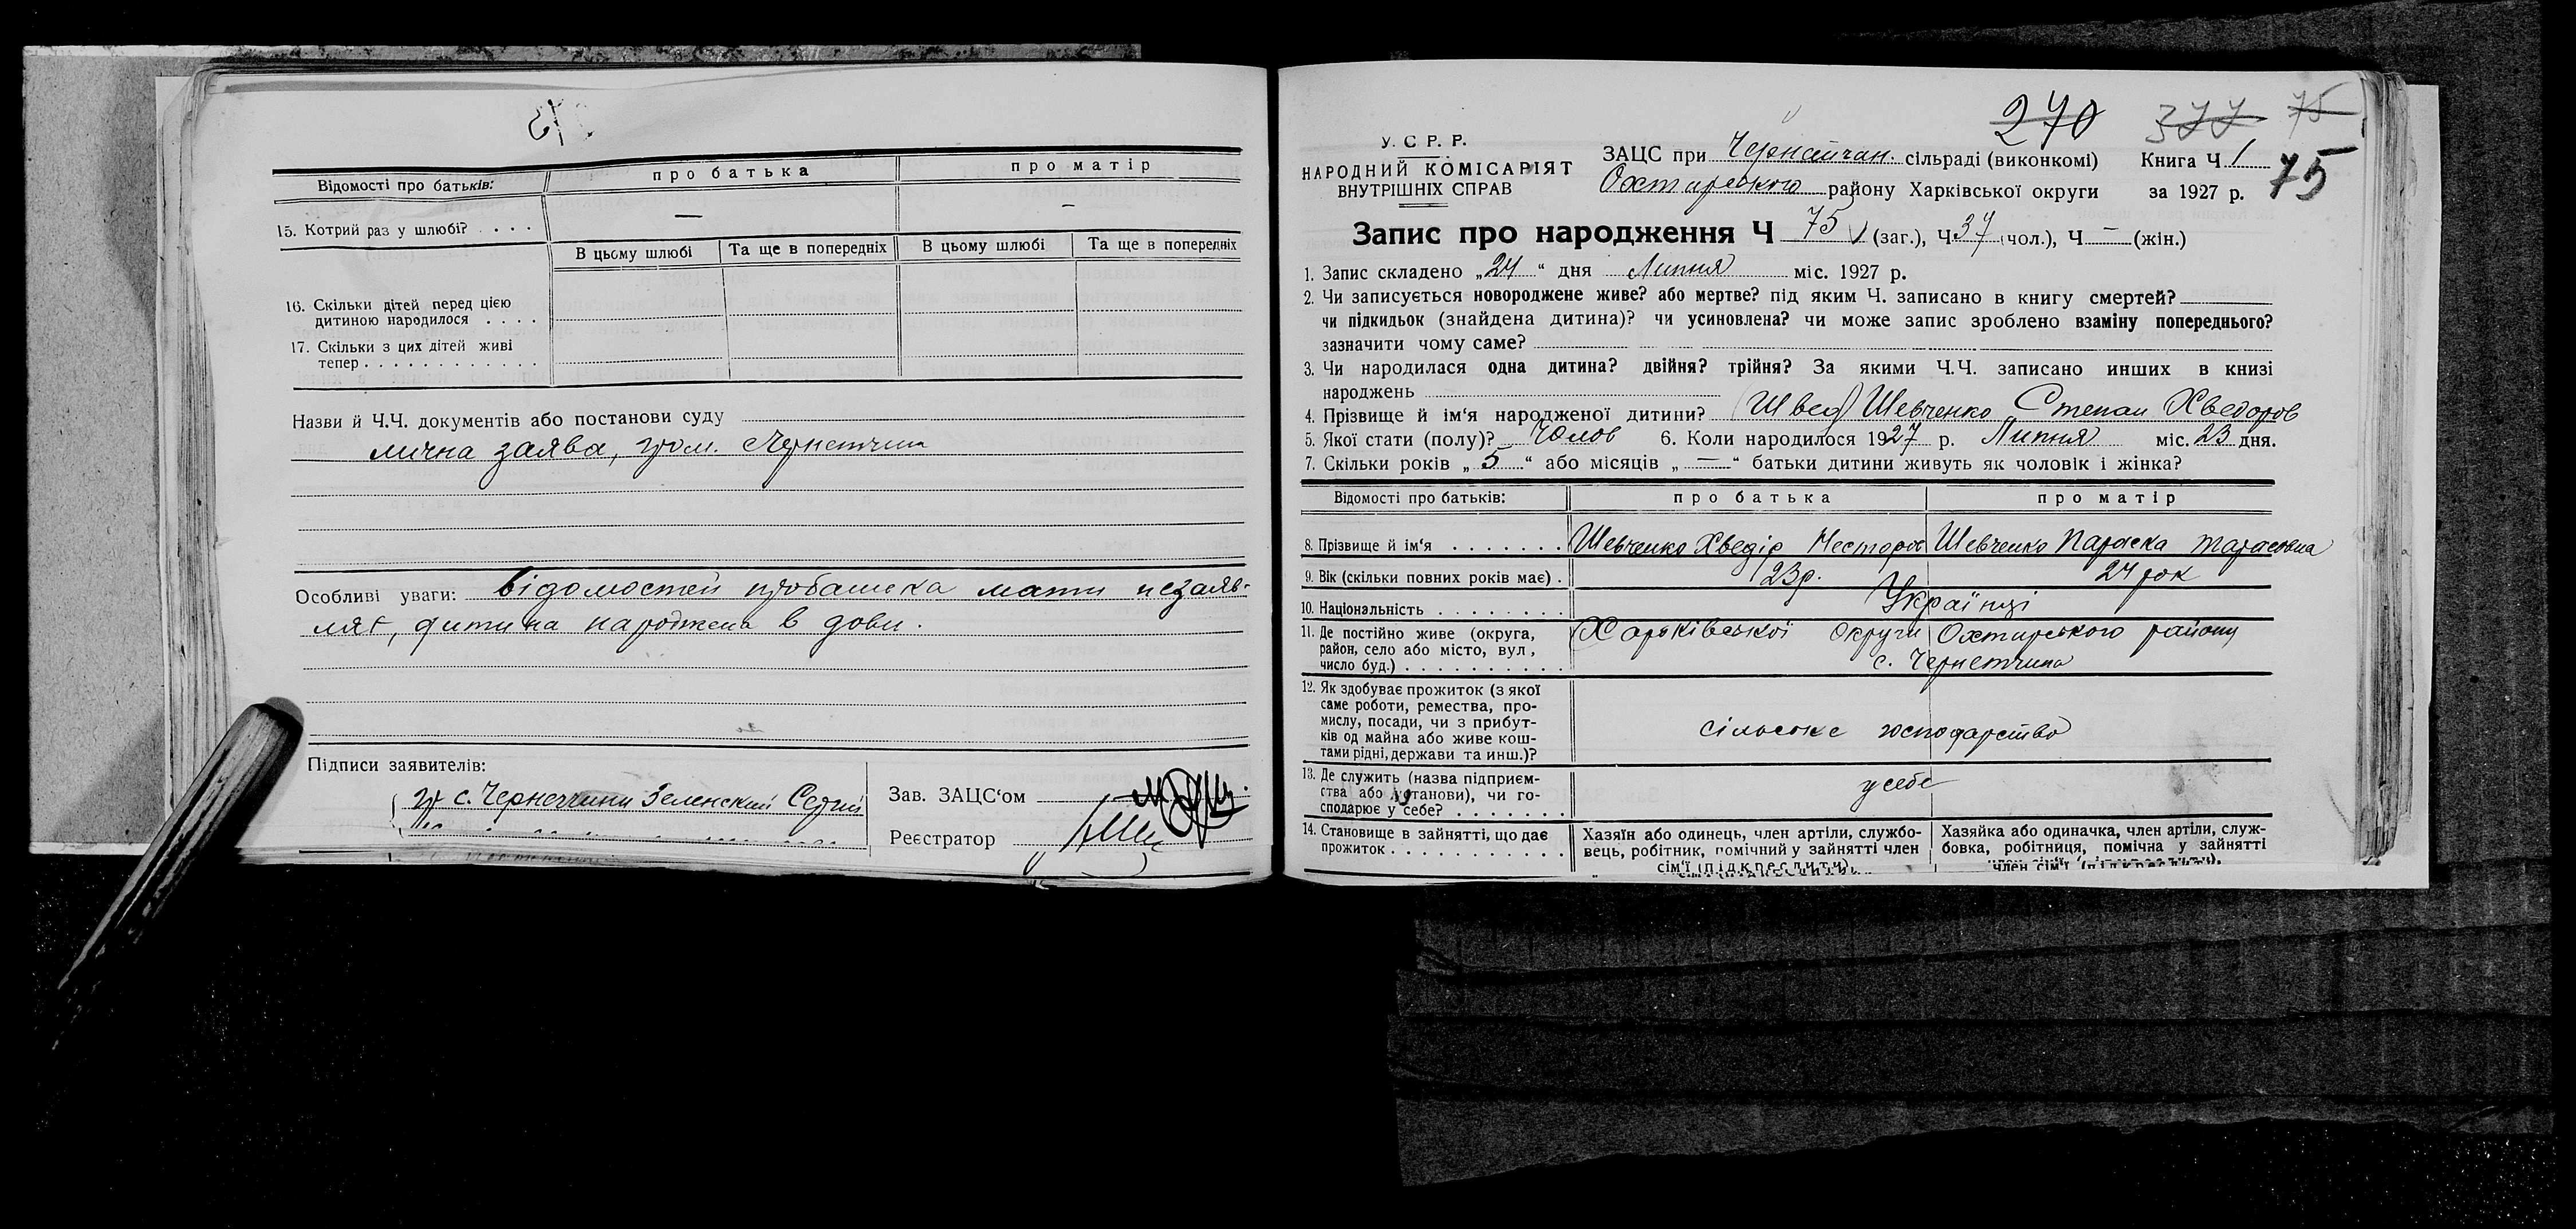 Відомості про батьків:
про батька
про матір
15. Котрий раз у шлюбі? . . . .
—
–
В цьому шлюбі
Та ще в попередніх
В цьому шлюбі
Та ще в попередніх
16. Скільки дітей перед цією
дитиною народилося . . . .
17. Скільки з цих дітей живі
тепер . . . . . . . . . . . .
Назви й Ч.Ч. документів або постанови суду
лична заява, гром. Чернетчина
Особливі уваги: відомостей пробатька мати незаяв-
ляє, дитина народжена в дови.
Підписи заявителів:
гр с. Чернеччини Зеленский Сергий
Зав. ЗАЦС‘ом
Реєстратор
270 377 75
У. С. Р. Р.
НАРОДНИЙ КОМІСАРІЯТ
ВНУТРІШНІХ СПРАВ
ЗАЦС при Чернетчан. сільраді (виконкомі)
Охтирського району Харківської округи
Книга Ч 1
за 1927 р.
75
Запис про народження Ч 75 (заг.), Ч 37 (чол.), Ч — (жін.)
1. Запис складено „24“ дня Липня міс. 1927 р.
2. Чи записується новороджене живе? або мертве? під яким Ч. записано в книгу смертей?
чи підкидьок (знайдена дитина)? чи усиновлена? чи може запис зроблено взаміну попереднього?
зазначити чому саме?
3. Чи народилася одна дитина? двійня? трійня? За якими Ч.Ч. записано инших в книзі
народжень
4. Прізвище й ім‘я народженої дитини? (Швед) Шевченко Степан Хведоров
5. Якої стати (полу)? Чолов 6. Коли народилося 1927 р. Липня міс. 23 дня.
7. Скільки років „5“ або місяців „—“ батьки дитини живуть як чоловік і жінка?
Відомості про батьків:
про батька
про матір
8. Прізвище й ім‘я . . . . . . . Шевченко Хведір Несторов Шевченко Параска Тарасовна
9. Вік (скільки повних років має) . 23р. 24 рок
10. Національність . . . . . . . . Українці
11. Де постійно живе (округа,
район, село або місто, вул,
число буд.) . . . . . . . . . .
Харьківської Округи Охтирського району
с. Чернетчина
12. Як здобуває прожиток (з якої
саме роботи, ремества, про-
мислу, посади, чи з прибут-
ків од майна або живе кош-
тами рідні, держави та инш.)?
сільське господарство
13. Де служить (назва підприєм-
ства або установи), чи го-
сподарює у себе? . . . . . . .
у себе
14. Становище в зайнятті, що дає
прожиток . . . . . . . . . . . .
Хазяїн або одинець, член артіли, службо-
вець, робітник, помічний у зайнятті член
сім‘ї (підкреслити).
Хазяйка або одиначка, член артіли, служ-
бовка, робітниця, помічна у зайнятті
член сім‘ї (підкреслити).